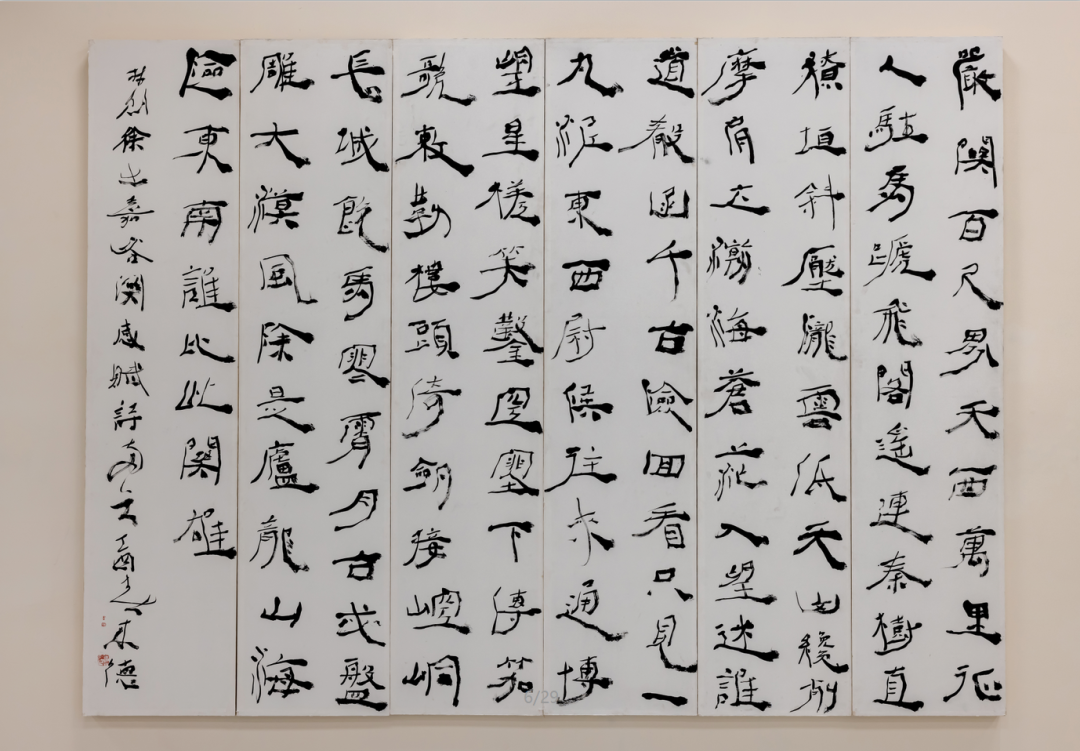 嚴關百尺界天西萬里征
人駐馬蹏飛閣遙連秦樹直
繚垣斜壓隴雲低天山巉削
摩肩立瀚海蒼茫入望迷誰
道殽函千古險回看只見一
丸泥東西尉候往來通博
望星槎笑鑿空塞下傳笳
歌敕勒樓頭倚劍接崆峒
長城飲馬寒宵月古戍盤
雕大漠風除是廬龍山海
險東南誰比此關雄
林則徐出嘉峪關感賦詩 來德
6/29